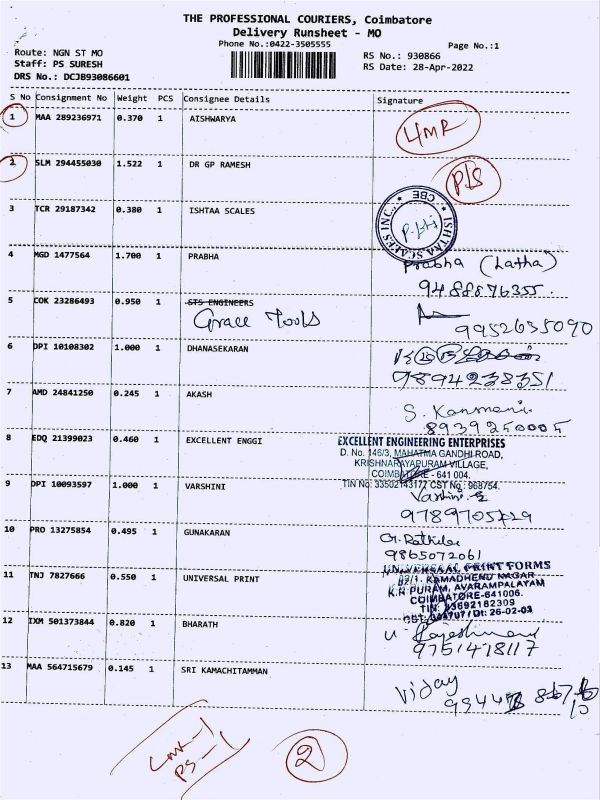 THE PROFESSIONAL COURIERS, Coimbatore
Delivery Runsheet - MO
Phone No.:0422-3505555
Page No.:1
Route: NGN ST MO
Staff: PS SURESH
DRS No.: DCJB93086601
RS No.: 930866
RS Date: 28-Apr-2022
S No Consignment No Weight PCS Consignee Details Signature
1 MAA 289236971 0.370 1 AISHWARYA
2 SLM 294455030 1.522 1 DR GP RAMESH
P/S
3 TCR 29187342 0.380 1 ISHTAA SCALES
CBE
4 MGD 1477564 1.700 1 PRABHA
Prabha (Latha)
9488876355.
5 COK 23286493 0.950 1 STS ENGINEERS
Grace Tools
9952635090
6 DPI 10108302 1.000 1 DHANASEKARAN
9894238351
7 AMD 24841250 0.245 1 AKASH
S. Kanmani
8939250005
8 EDQ 21399023 0.460 1 EXCELLENT ENGGI
EXCELLENT ENGINEERING ENTERPRISES
D. No. 146/3, MAHATMA GANDHI ROAD,
KRISHNARAYAPURAM VILLAGE,
COIMBATORE - 641 004.
TIN No: 33502143177 CST No: 968754.
9 DPI 10093597 1.000 1 VARSHINI
Varshini
9789705729
10 PRO 13275854 0.495 1 GUNAKARAN
9865072061
11 TNJ 7827666 0.550 1 UNIVERSAL PRINT
UNIVERSAAL PRINT FORMS
KAMADHENU NAGAR
K.R PURAM, AVARAMPALAYAM
COIMBATORE-641006.
TIN: 33692182309
Dt: 26-02-03
12 IXM 501373844 0.820 1 BHARATH
9751478117
13 MAA 564715679 0.145 1 SRI KAMACHITAMMAN
Vijay
PS - 1
2